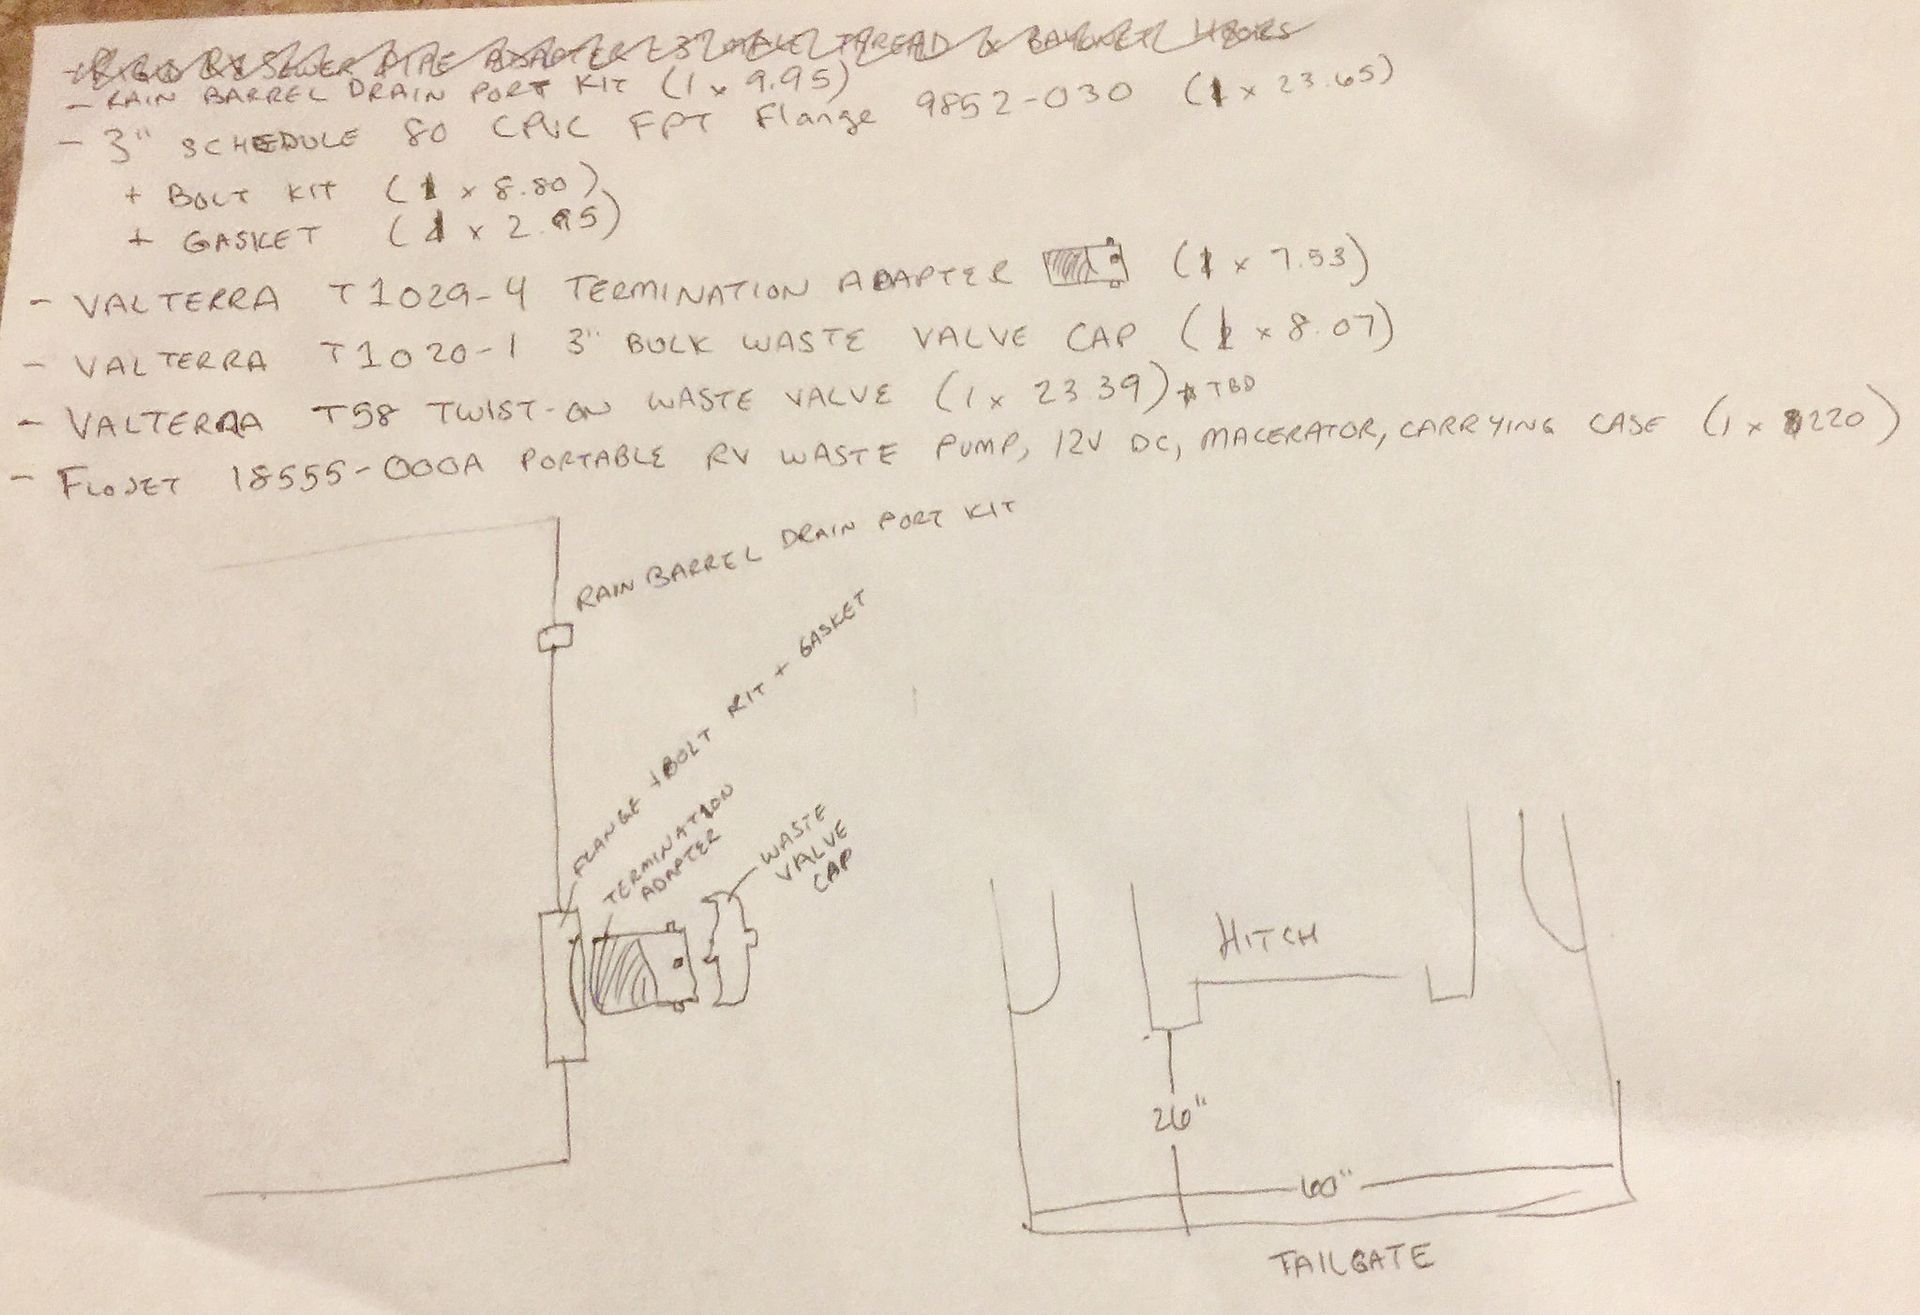 SEWER PIPE ADAPTER 3 MALE THREAD & BAYONET HOOKS
- RAIN BARREL DRAIN PORT KIT (1 x 9.95)
- 3" SCHEDULE 80 CPVC FPT Flange 9852-030 (1 x 23.65)
+ BOLT KIT (1 x 8.80)
+ GASKET (1 x 2.95)
- VALTERRA T1029-4 TERMINATION ADAPTER (1 x 7.53)
- VALTERRA T1020-1 3" BULK WASTE VALVE CAP (1 x 8.07)
- VALTERRA T58 TWIST-ON WASTE VALVE (1 x 23.39) * TBD
- FLOJET 18555-000A PORTABLE RV WASTE PUMP, 12V DC, MACERATOR, CARRYING CASE (1 x 220)
RAIN BARREL DRAIN PORT KIT
FLANGE + BOLT KIT + GASKET
TERMINATION
ADAPTER
WASTE
VALVE
CAP
HITCH
26"
60"
TAILGATE